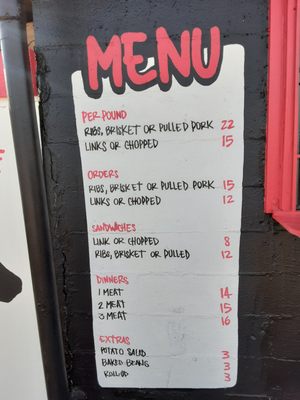 MENU
PER POUND
RIBS, BRISKET OR PULLED PORK 22
LINKS OR CHOPPED 15
ORDERS
RIBS, BRISKET OR PULLED PORK 15
LINKS OR CHOPPED 12
SANDWICHES
LINK OR CHOPPED 8
RIBS, BRISKET OR PULLED 12
DINNERS
1 MEAT 14
2 MEAT 15
3 MEAT 16
EXTRAS
POTATO SALAD 3
BAKED BEANS 3
3